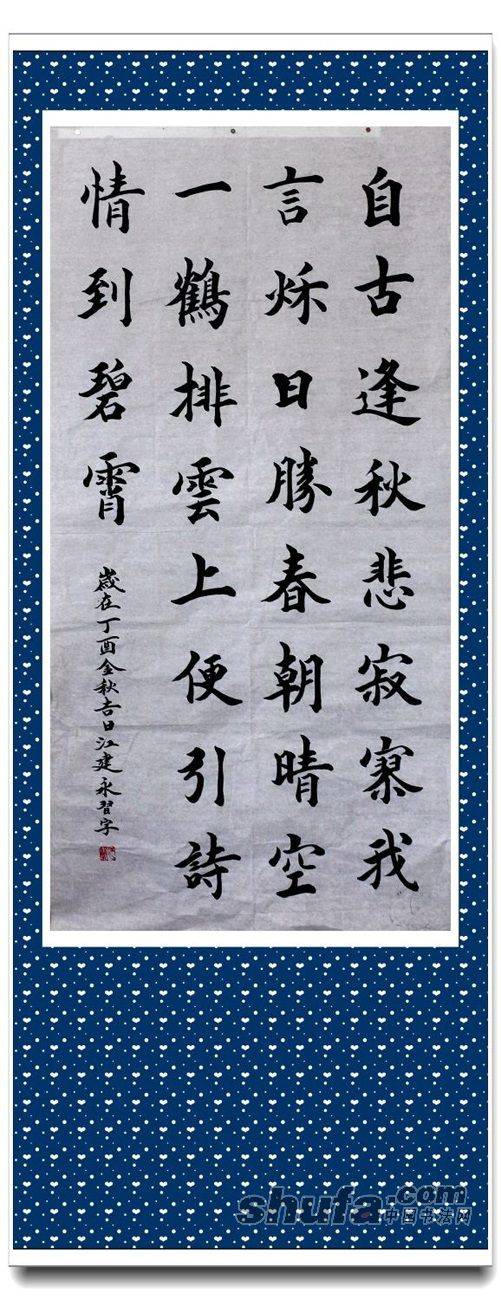 自古逢秋悲寂寥我
言秌日勝春朝晴空
一鶴排雲上便引詩
情到碧霄
歲在丁酉金秋吉日江建永習字
shufa.com
中国书法网